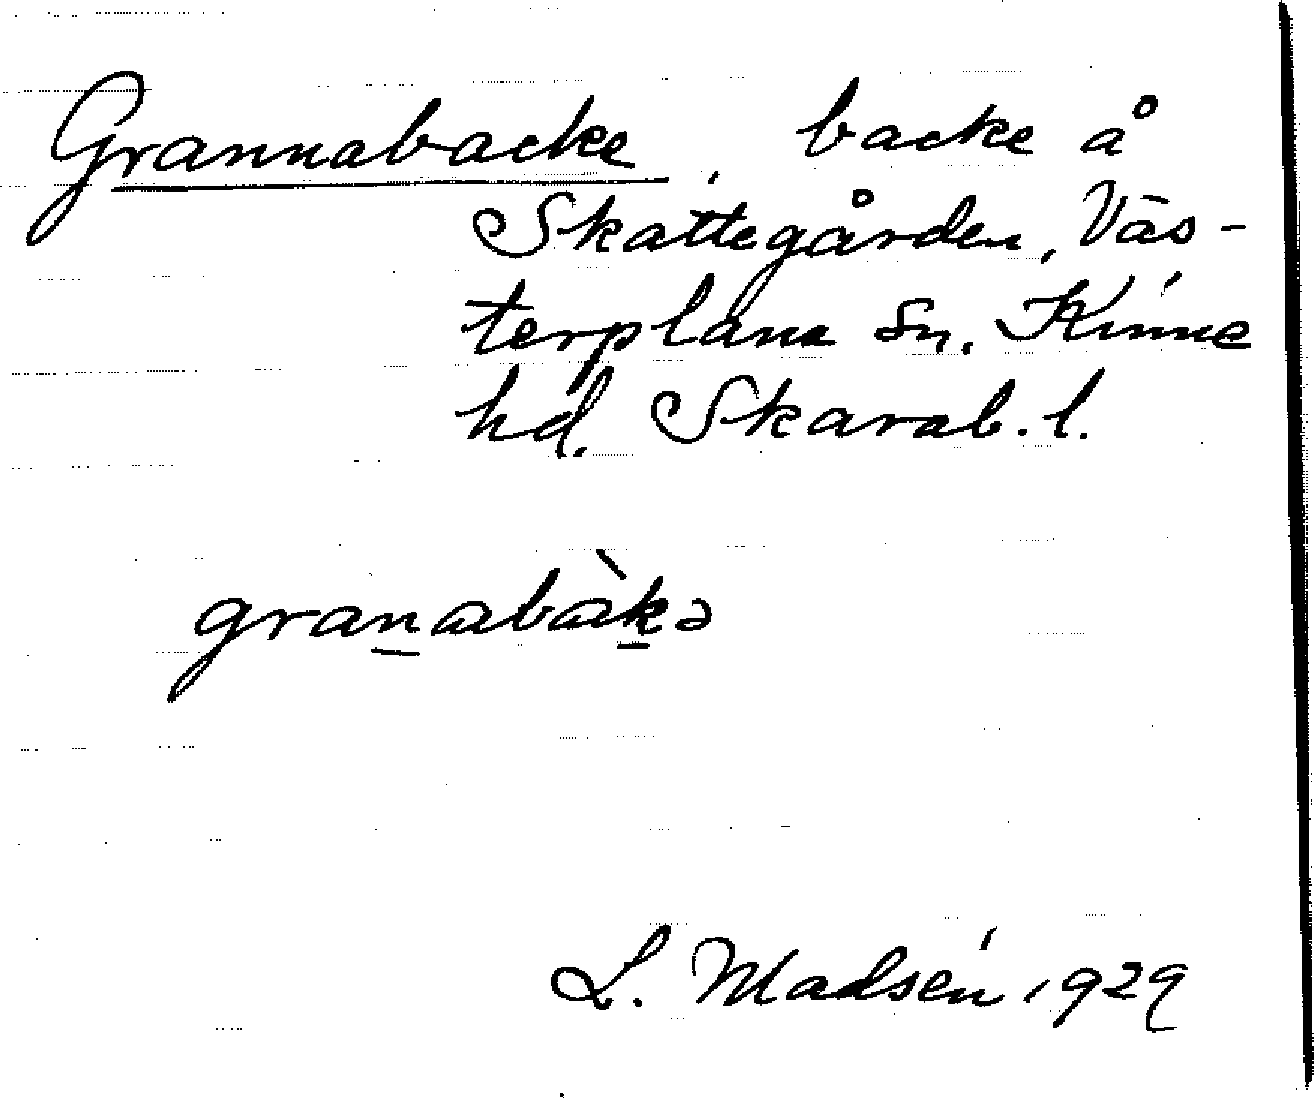 Grannabacke, backe å
Skattegården, Väs-
terplana sn. Kinne
hd. Skarab. l.
granabàkə
L. Madsén 1929